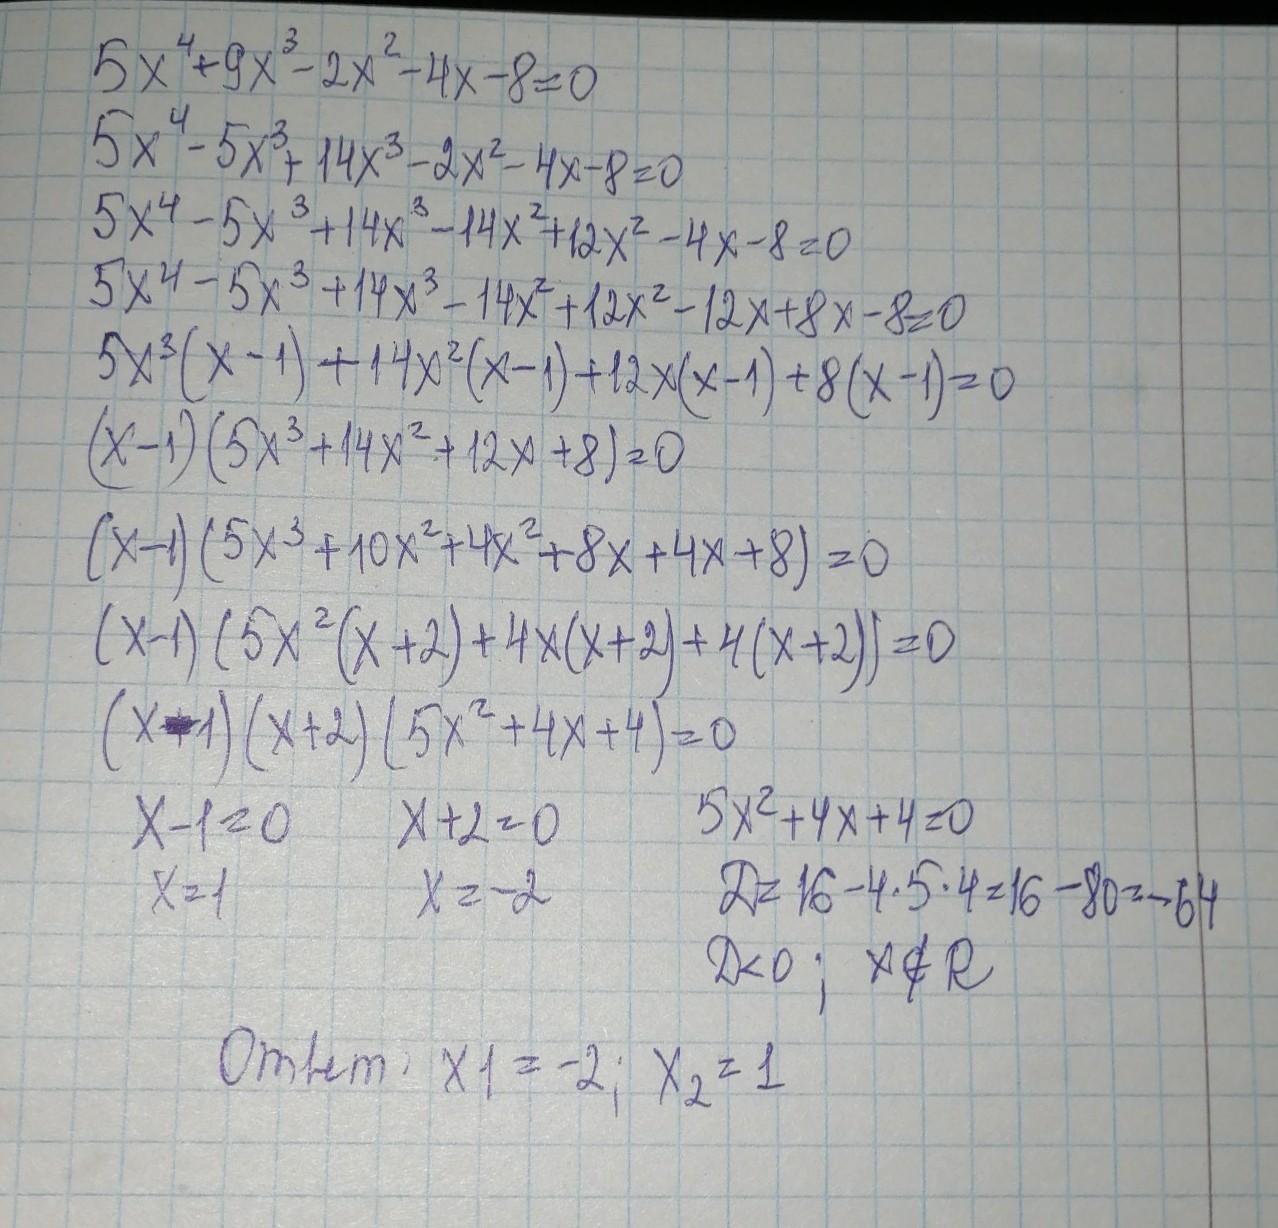 5x⁴+9x³-2x²-4x-8=0
5x⁴-5x³+14x³-2x²-4x-8=0
5x⁴-5x³+14x³-14x²+12x²-4x-8=0
5x⁴-5x³+14x³-14x²+12x²-12x+8x-8=0
5x³(x-1)+14x²(x-1)+12x(x-1)+8(x-1)=0
(x-1)(5x³+14x²+12x+8)=0
(x-1)(5x³+10x²+4x²+8x+4x+8)=0
(x-1)(5x²(x+2)+4x(x+2)+4(x+2))=0
(x-1)(x+2)(5x²+4x+4)=0
x-1=0 x+2=0 5x²+4x+4=0
x=1 x=-2 D=16-4·5·4=16-80=-64
D<0; x∉R
Ответ: x1=-2; x₂=1